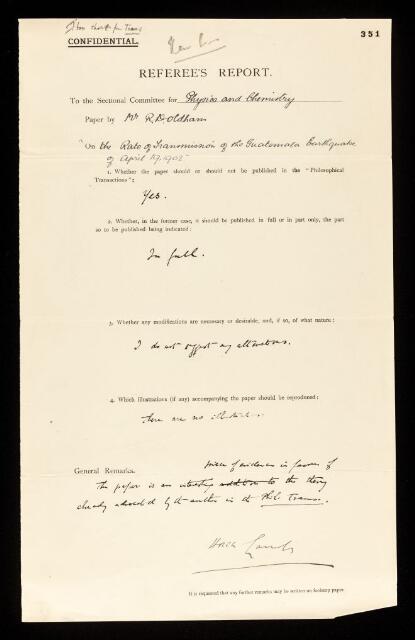 I too think for Trans
CONFIDENTIAL.
351
REFEREE'S REPORT.
To the Sectional Committee for Physics and Chemistry
Paper by Mr R.D. Oldham
"On the Rate of Transmission of the Guatemala Earthquake
of April 19, 1902"
1. Whether the paper should or should not be published in the "Philosophical
Transactions":
Yes.
2. Whether, in the former case, it should be published in full or in part only, the part
so to be published being indicated:
In full.
3. Whether any modifications are necessary or desirable, and, if so, of what nature:
I do not suggest any alterations.
4. Which illustrations (if any) accompanying the paper should be reproduced:
There are no illustrations.
piece of evidence in favour of
General Remarks.
The paper is an interesting addition to the theory
already advocated by the author in the Phil. Trans.
Horace Lamb
It is requested that any further remarks may be written on foolscap paper.